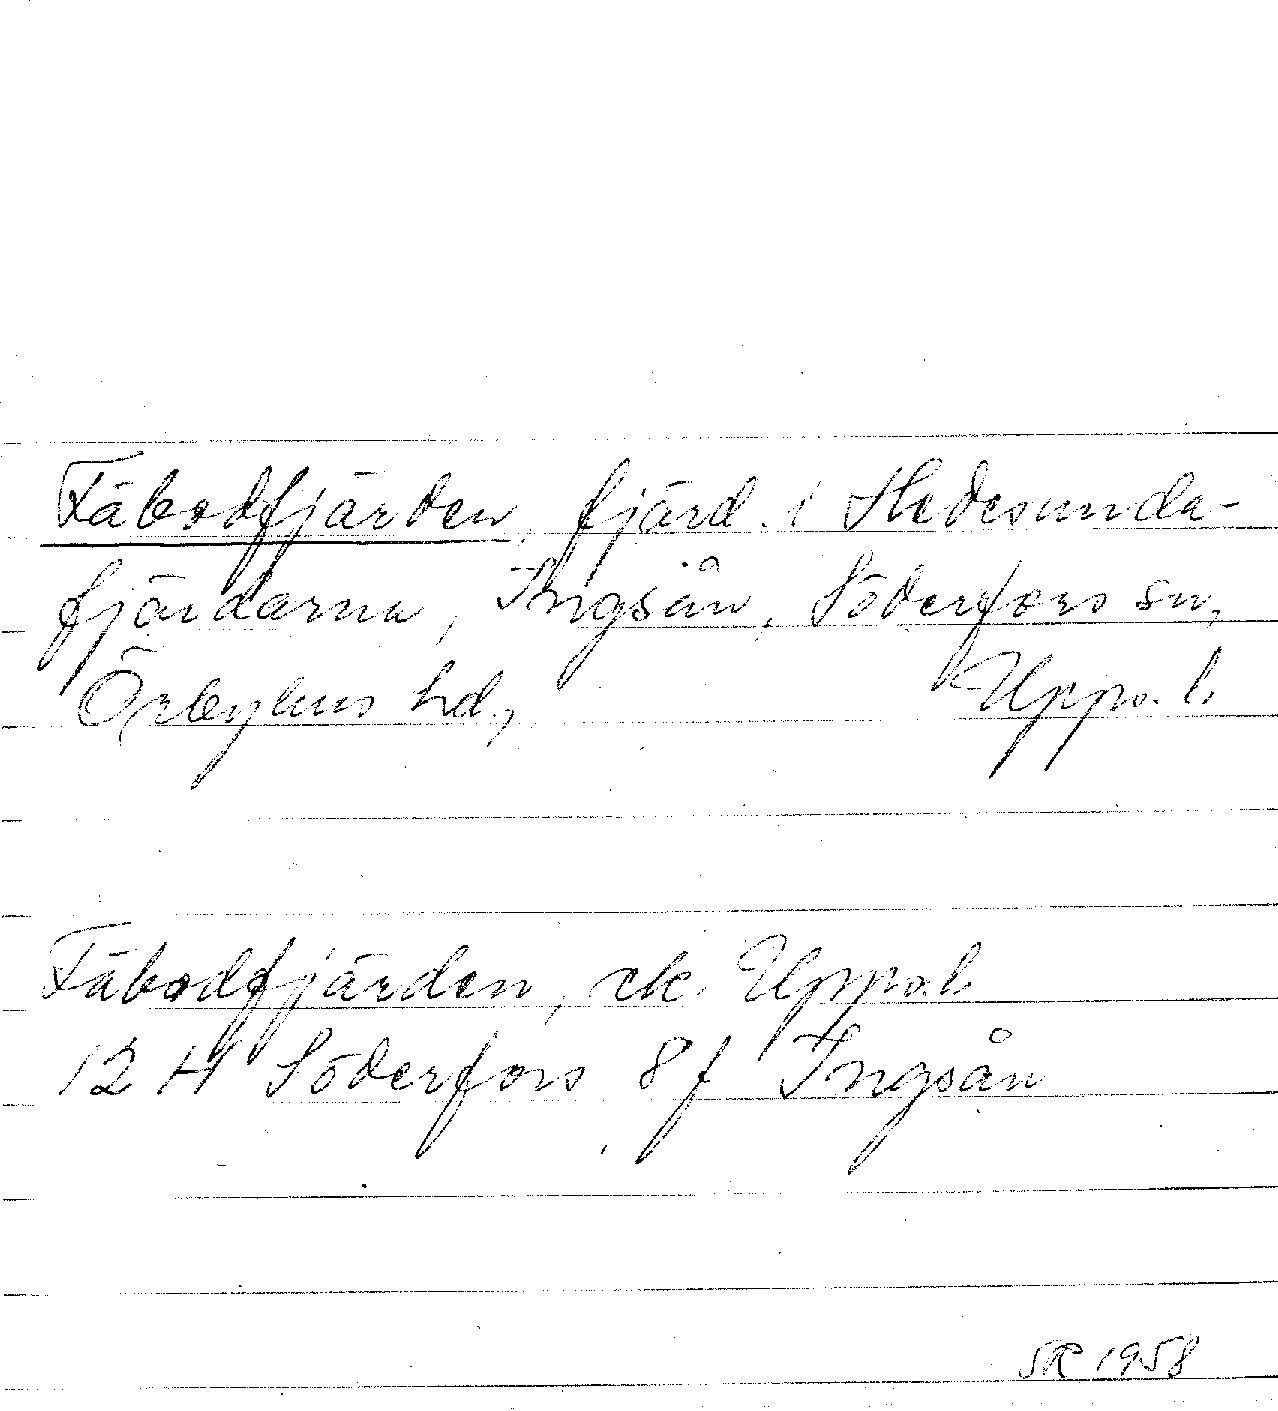 Fäbodfjärden, fjärd i Hedesunda-
fjärdarna, Ingsån, Söderfors sn,
Örbyhus hd, Upps. l.
Fäbodfjärden, ek. Upps. l.
12 H Söderfors 8f Ingsån
SR 1958